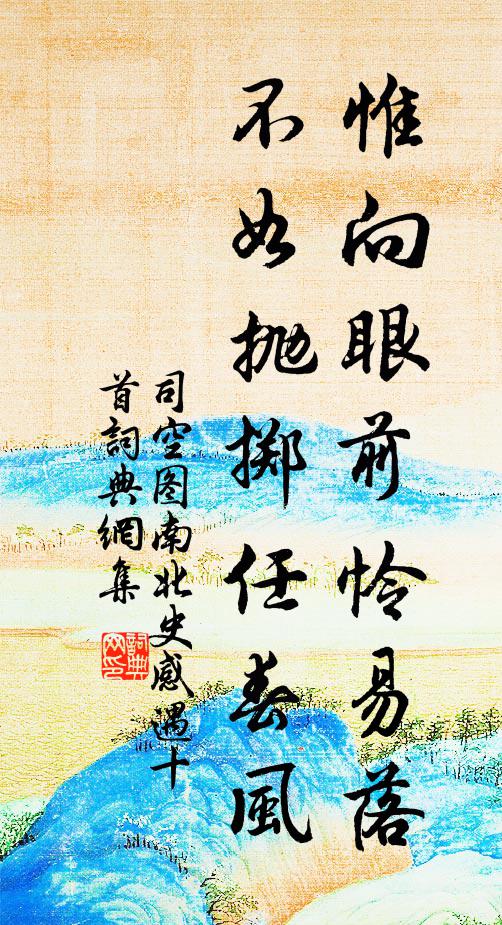 惟向眼前怜易落
不如抛掷任春風
司空图南北史感遇十
首詞典網集
詞典